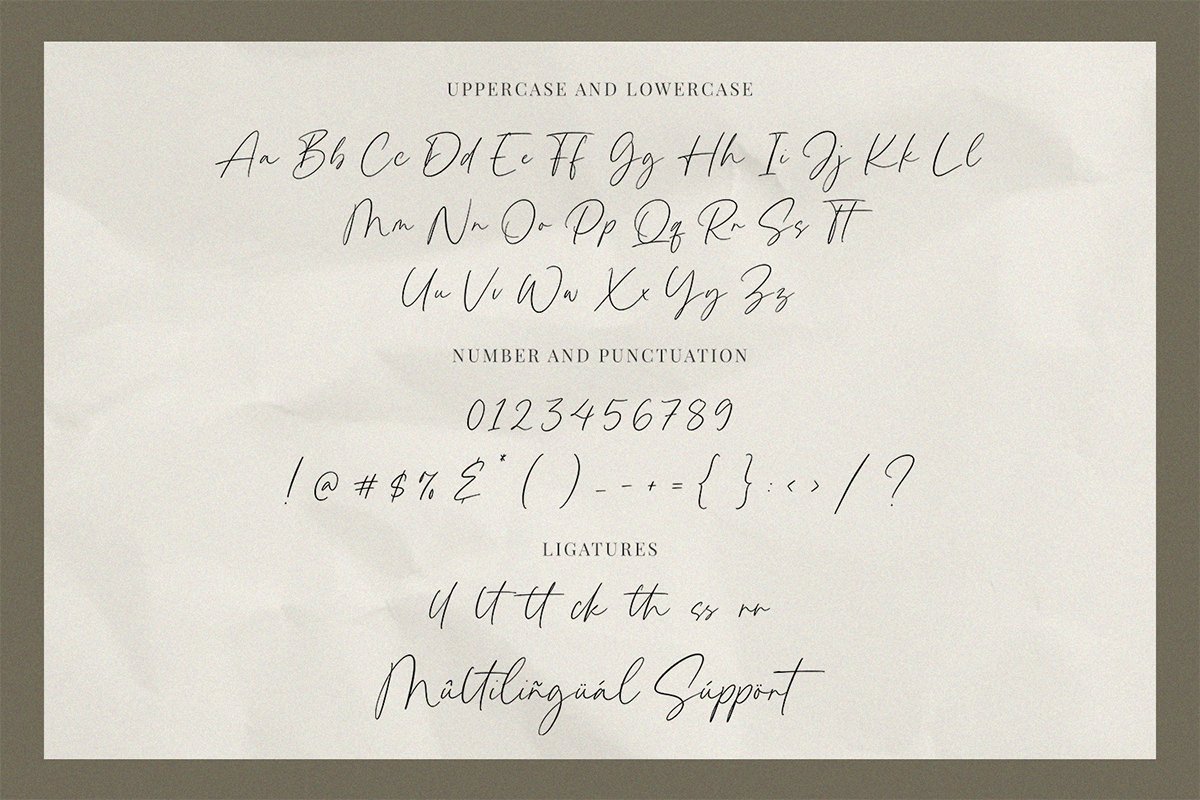 UPPERCASE AND LOWERCASE
Aa Bb Cc Dd Ee Ff Gg Hh Ii Jj Kk Ll
Mm Nn Oo Pp Qq Rr Ss Tt
Uu Vv Ww Xx Yy Zz
NUMBER AND PUNCTUATION
0123456789
! @ # $ % & * ( ) _ - + = { } : < > / ?
LIGATURES
ll lt tt ck th ss rr
Mûltiliñgüál Súppört